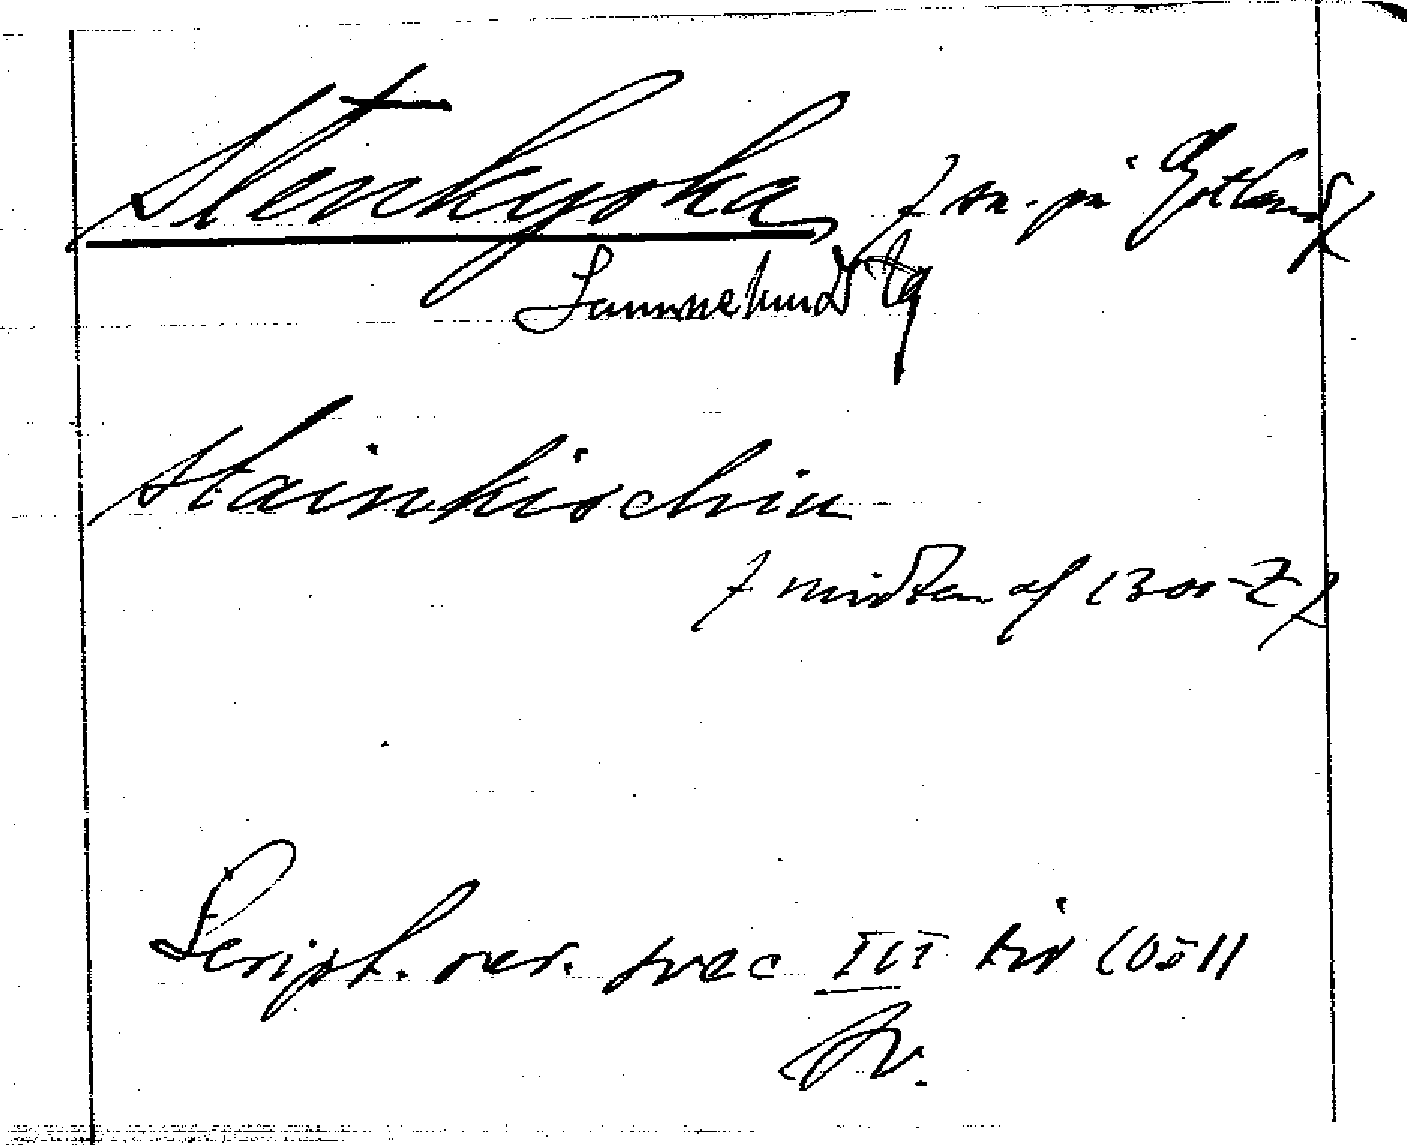 Stenkyrka, / sn. på Gotland /
Lummelunds tg
Stainkirchiu
/ midten af 1300-t /
Script. rer. svec III